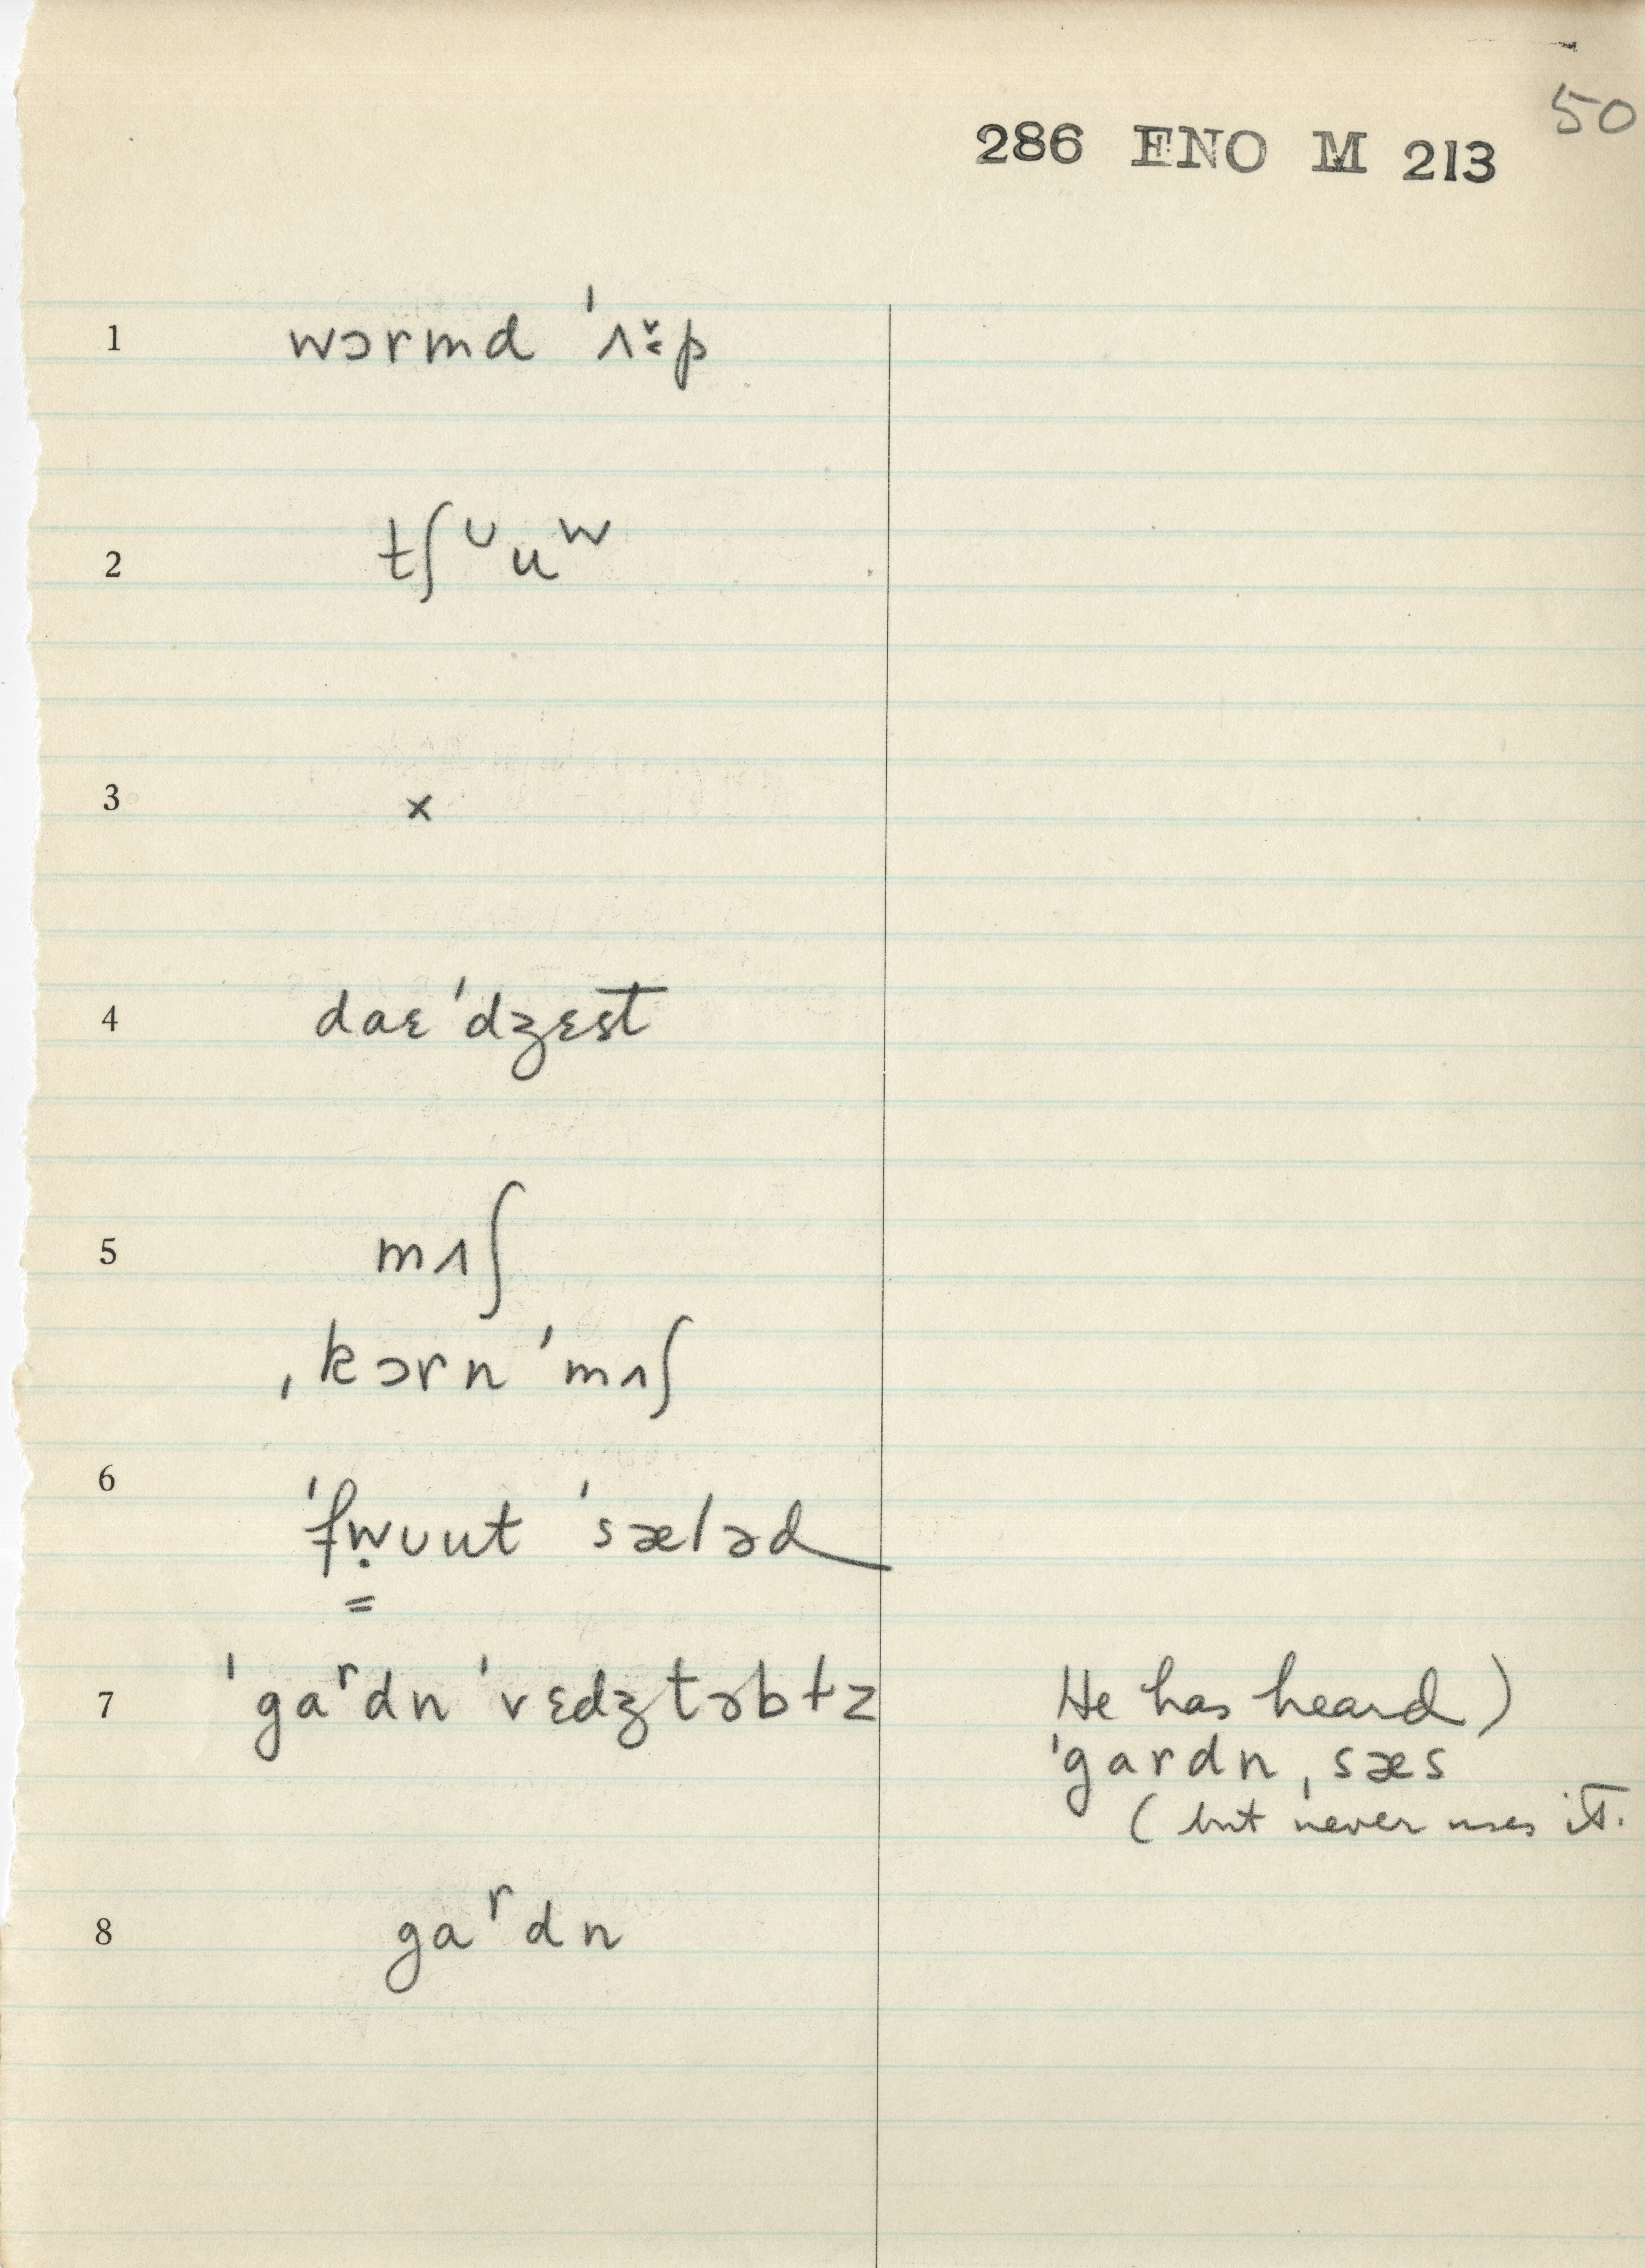 50
286 ENO M 213
1 wɔrmd ˈʌ̌˞p
2 tʃᶷuʷ
3 x
4 daɛˈdʒɛst
5 mʌʃ
ˌkɔrnˈmʌʃ
6 ˈfẉʊut ˈsæləd
=
7 ˈgaʳdn ˈvɛdʒtəbɫz He has heard)
ˈgardnˌsæs
(but never uses it.
8 gaʳdn